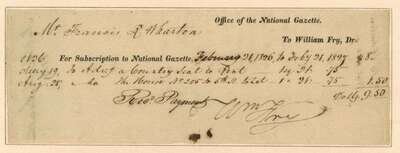 Office of the National Gazette.
Mr. Francis R Wharton
To William Fry, Dr.
1826 For Subscription to National Gazette, February 21, 1826, to Feby 21, 1827 $8.
May 19, to Advg a Country Seat to Rent 1sq 3t. 75
Aug. 28, " do the House No 200 1sq 3t. 75 1.50
Dolls 9.50
Recd Payment
Wm Fry